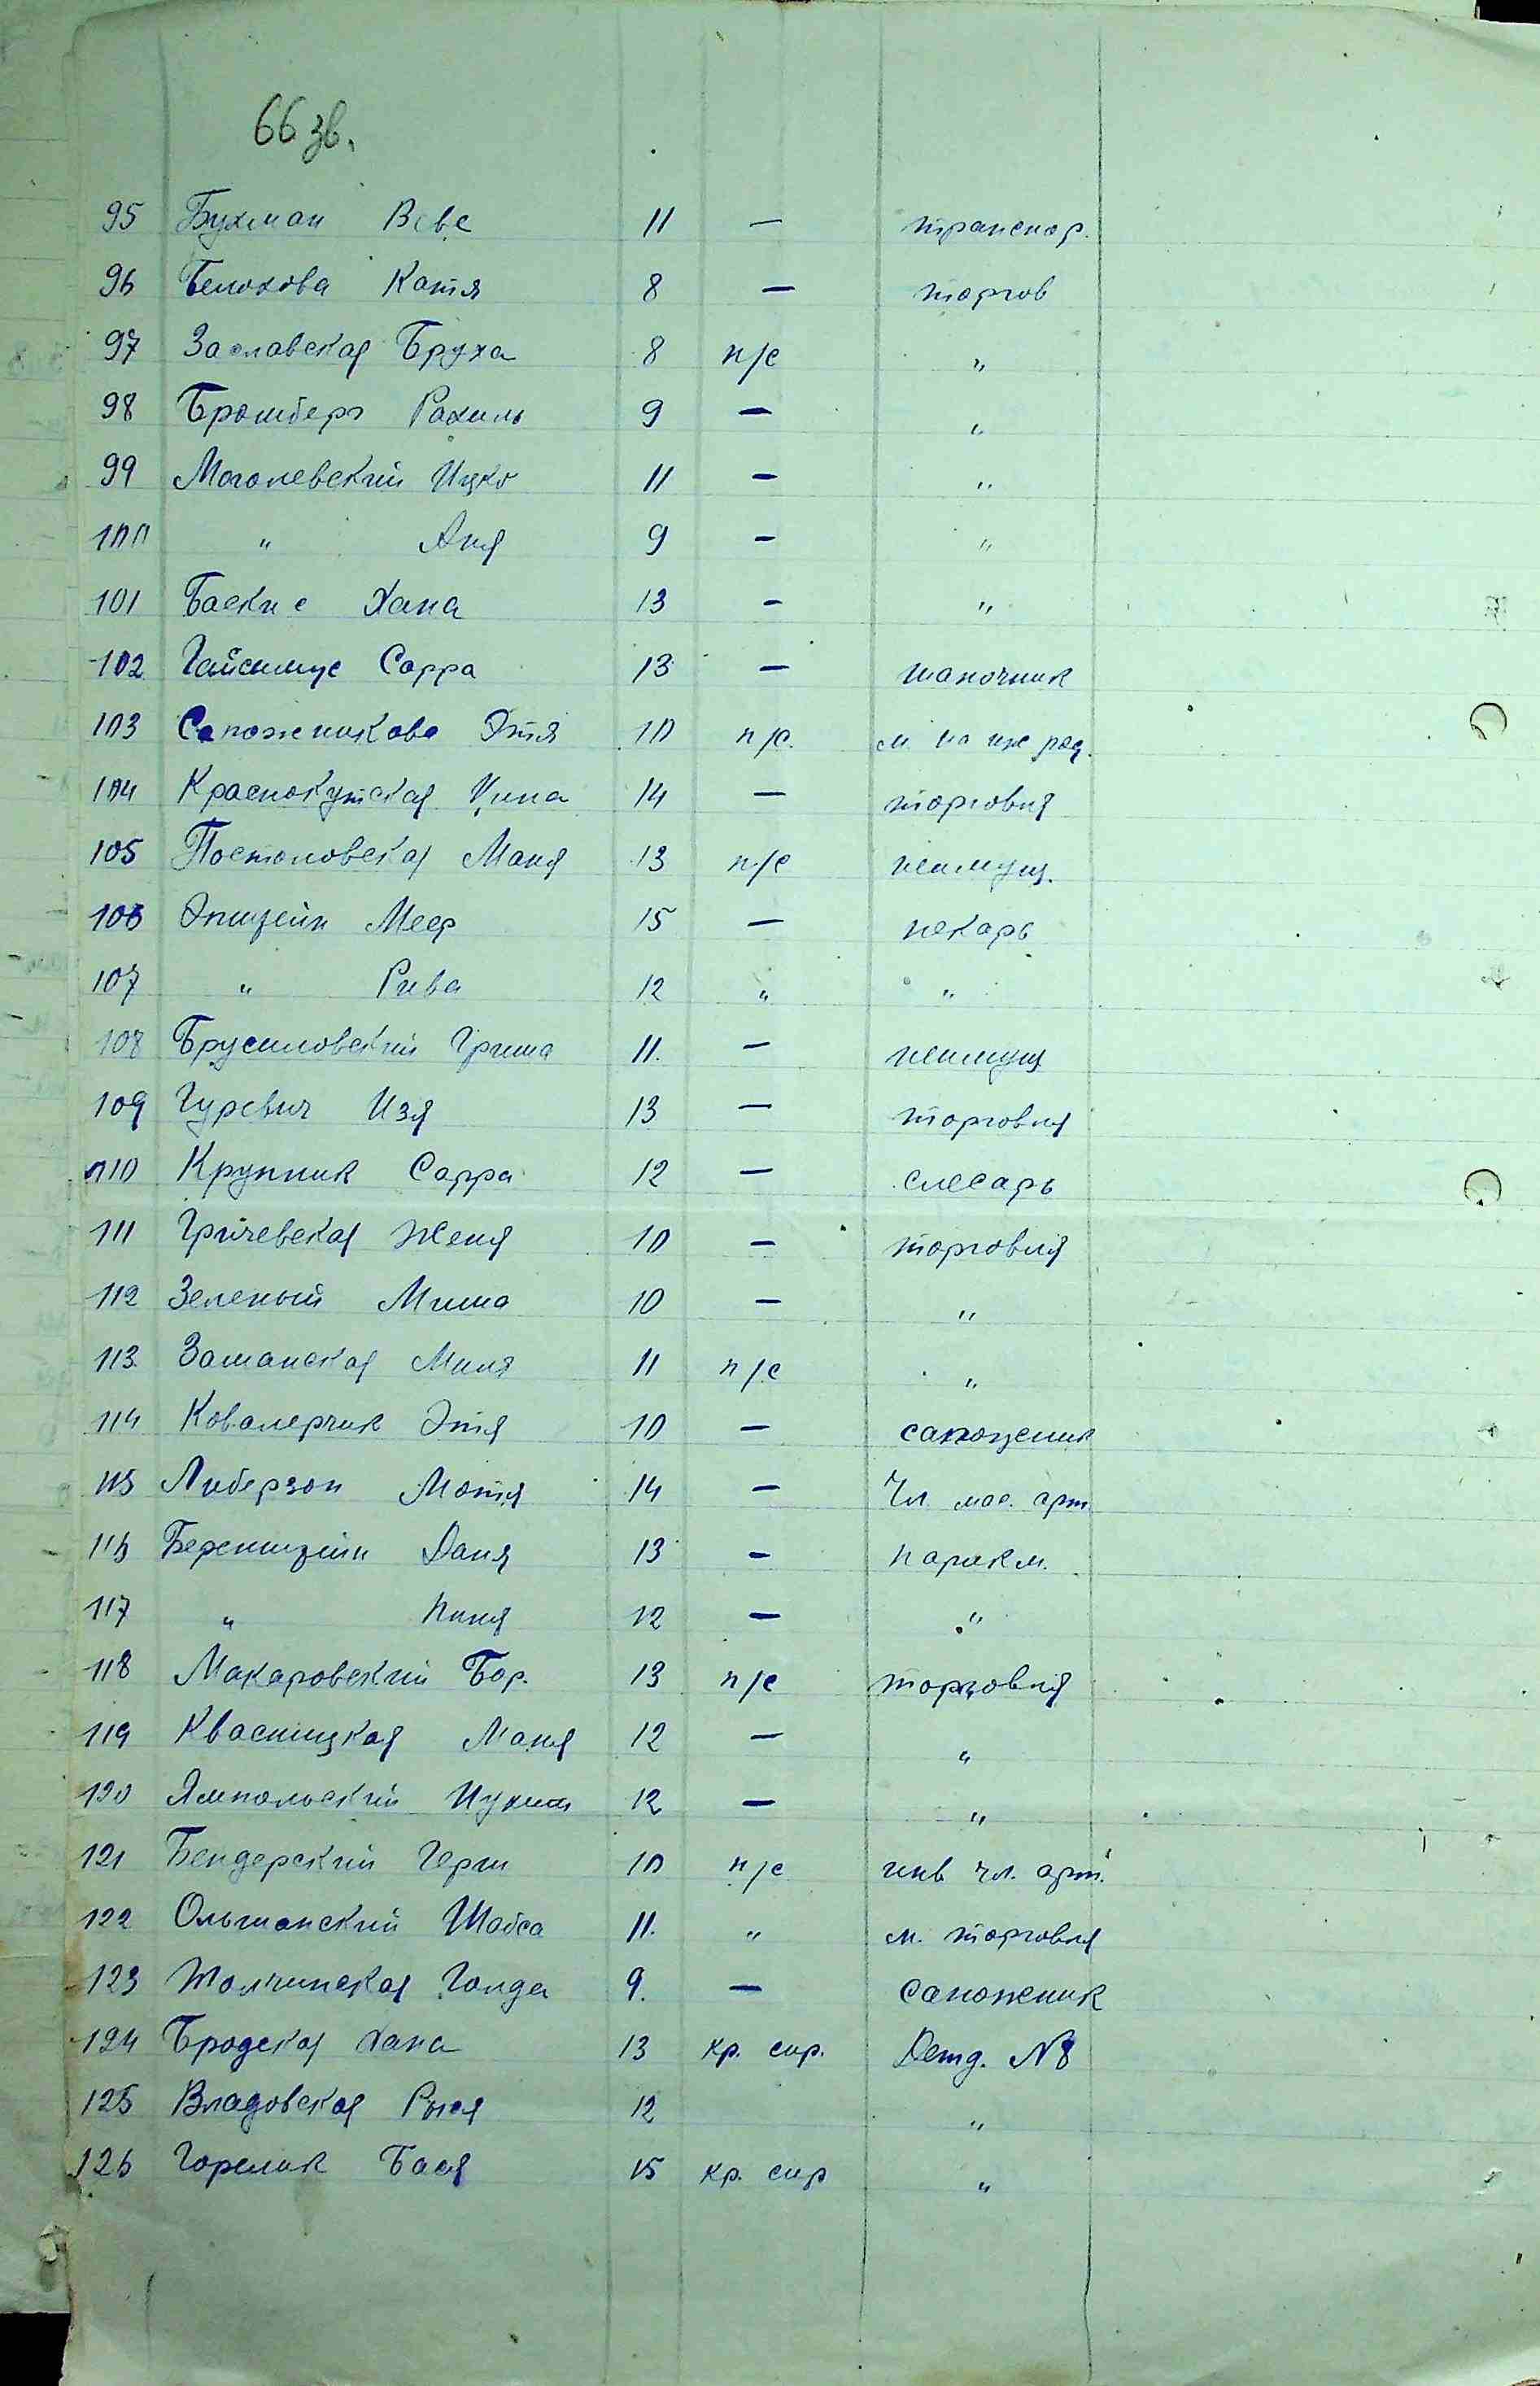 66 зв.
95 Бухман Веве 11 — транспор.
96 Белохова Катя 8 — торгов
97 Заславская Бруха 8 п/с "
98 Бромберг Рахиль 9 — "
99 Моголевский Ицко 11 — "
100 " Аня 9 — "
101 Баскис Хана 13 — "
102 Гайсинус Сарра 13 — шапочник
103 Сапожникова Этя 10 п/с. м.
104 Краснокутская Цина 14 — торговля
105 Постоловская Маня 13 п/с неимущ.
106 Эпштейн Меер 15 — пекарь
107 " Рива 12 " "
108 Брусиловский Гриша 11. — неимущ
109 Гуревич Изя 13 — торговля
110 Крупник Сарра 12 — слесарь
111 Гричевская Женя 10 — торговля
112 Зеленый Миша 10 — "
113. Заманская Миля 11 п/с "
114 Ковалерчик Этя 10 — сапожник
115 Либерзон Мотя 14 — Чл. мас. арт.
116 Беренштейн Даня 13 — парикм.
117 " Пиня 12 — "
118 Макаровский Бор. 13 п/с торговля
119 Квасницкая Маня 12 — "
120 Ямпольский 12 — "
121 Бендерский Герш 10 п/с инв чл. арт.
122 Ольшанский Шабса 11. " м. торговля
123 Толчинская Голда 9. — сапожник
124 Бродская Хана 13 кр. сир. Детд. №8
125 Владовская Рыся 12 "
126 Горелик Бася 15 кр. сир "